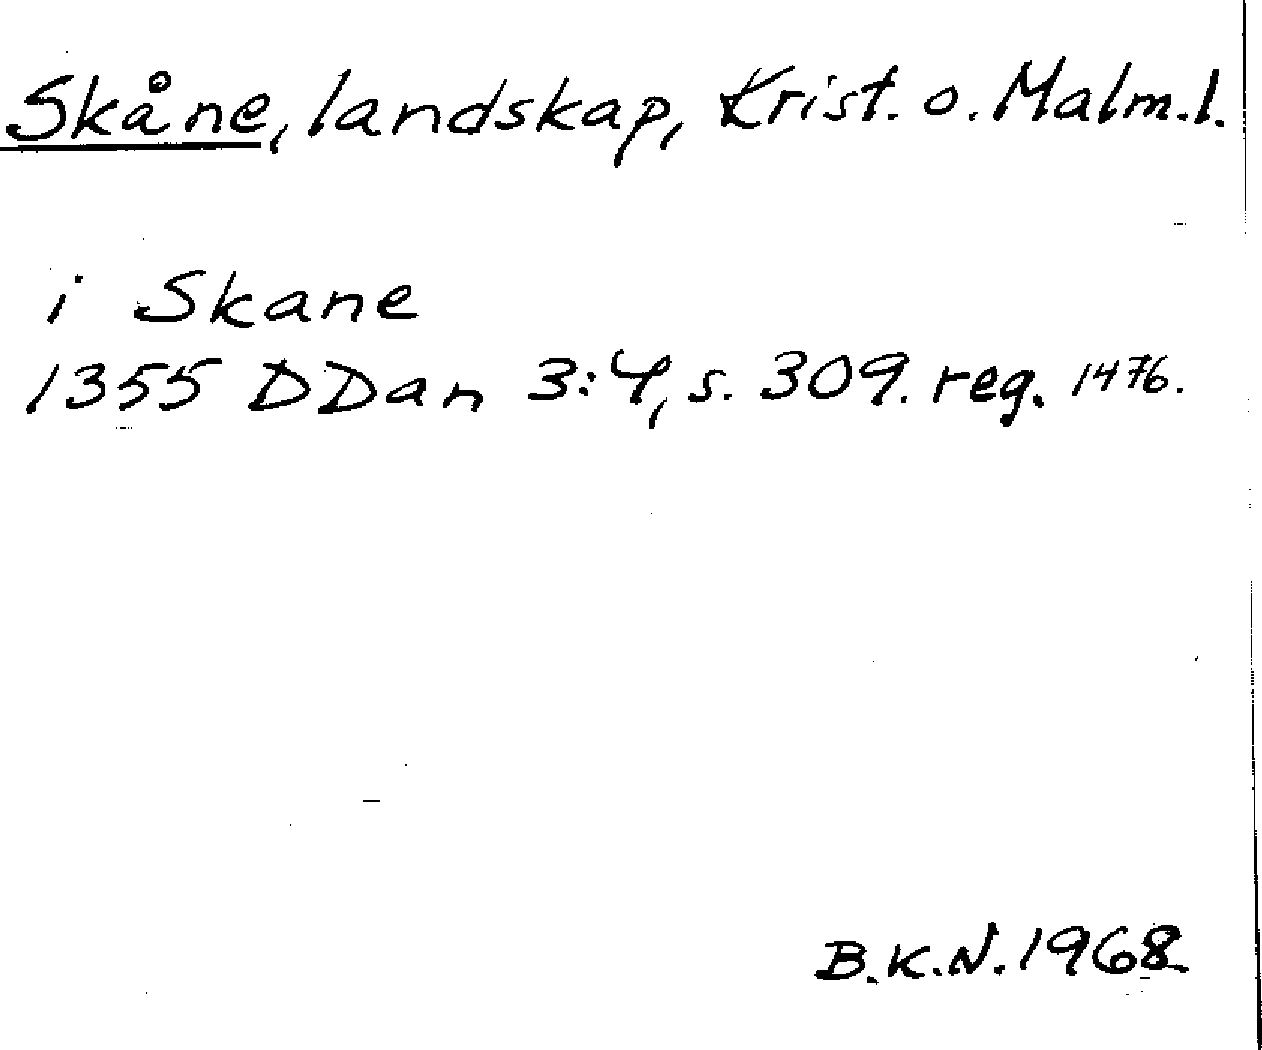 Skåne, landskap, Krist. o. Malm.l.
i Skane
1355 DDan 3:4, s. 309. reg. 1476.
B.K.N. 1968